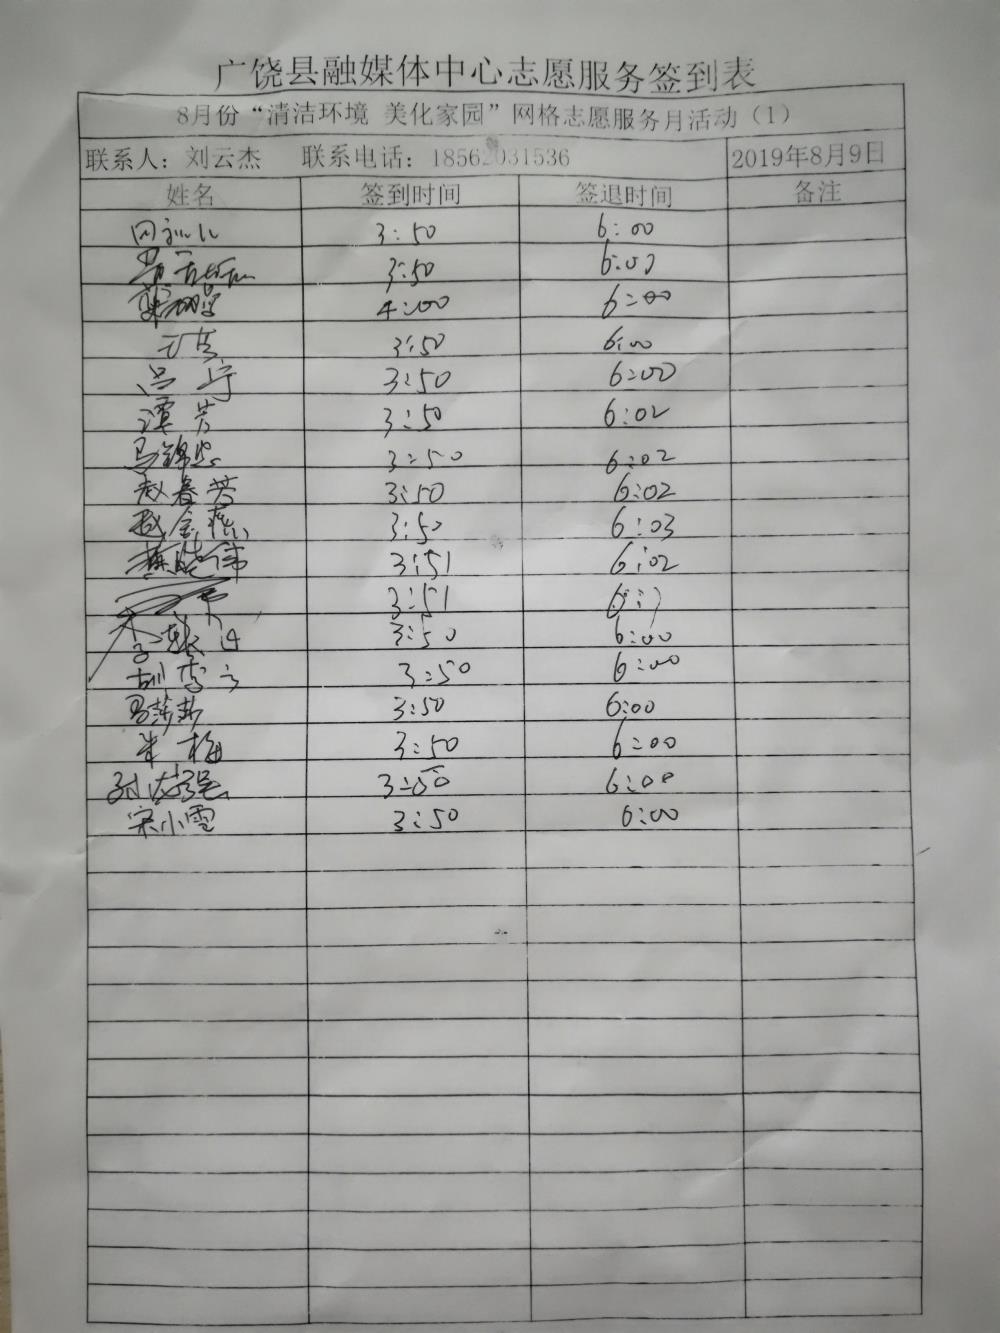 广饶县融媒体中心志愿服务签到表
8月份“清洁环境 美化家园”网格志愿服务月活动（1）
联系人：刘云杰 联系电话：18562031536 2019年8月9日
姓名 签到时间 签退时间 备注
3:50 6:00
3:50 6:00
4:00 6:00
3:50 6:00
吕宁 3:50 6:00
谭芳 3:50 6:02
3:50 6:02
赵春芳 3:50 6:02
3:50 6:03
3:51 6:02
3:51
3:50 6:00
3:50 6:00
马莎莎 3:50 6:00
朱梅 3:50 6:00
6:00
宋小雪 3:50 6:00